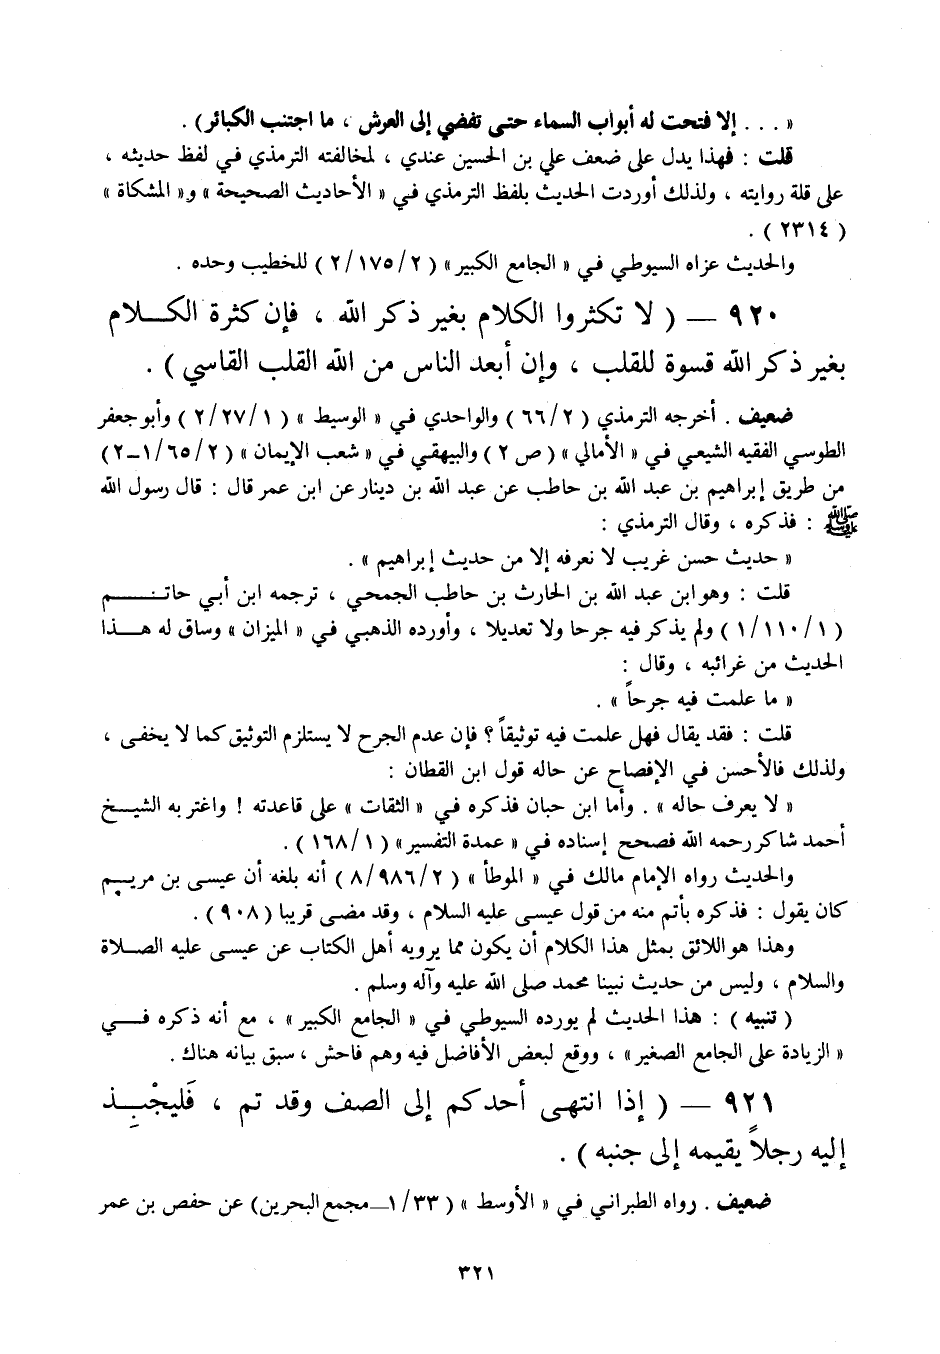 « . . . إلا فتحت له أبواب السماء حتى تفضي إلى العرش ، ما اجتنب الكبائر) .
قلت : فهذا يدل على ضعف علي بن الحسين عندي ، لمخالفته الترمذي في لفظ حديثه ،
على قلة روايته ، ولذلك أوردت الحديث بلفظ الترمذي في « الأحاديث الصحيحة » و« المشكاة »
( ٢٣١٤ ) .
والحديث عزاه السيوطي في « الجامع الكبير» ( ٢/١٧٥/٢ ) للخطيب وحده .
٩٢٠ — ( لا تكثروا الكلام بغير ذكر الله ، فإن كثرة الكلام
بغير ذكر الله قسوة للقلب ، وإن أبعد الناس من الله القلب القاسي ) .
ضعيف . أخرجه الترمذي ( ٦٦/٢ ) والواحدي في « الوسيط » ( ٢/٢٧/١ ) وأبو جعفر
الطوسي الفقيه الشيعي في « الأمالي » ( ص ٢ ) والبيهقي في « شعب الإيمان » ( ١/٦٥/٢–٢ )
من طريق إبراهيم بن عبد الله بن حاطب عن عبد الله بن دينار عن ابن عمر قال : قال رسول الله
ﷺ : فذكره ، وقال الترمذي :
« حديث حسن غريب لا نعرفه إلا من حديث إبراهيم » .
قلت : وهو ابن عبد الله بن الحارث بن حاطب الجمحي ، ترجمه ابن أبي حاتم
( ١/١١٠/١ ) ولم يذكر فيه جرحا ولا تعديلا ، وأورده الذهبي في « الميزان » وساق له هذا
الحديث من غرائبه ، وقال :
« ما علمت فيه جرحاً » .
قلت : فقد يقال فهل علمت فيه توثيقاً ؟ فإن عدم الجرح لا يستلزم التوثيق كما لا يخفى ،
ولذلك فالأحسن في الإفصاح عن حاله قول ابن القطان :
« لا يعرف حاله » . وأما ابن حبان فذكره في « الثقات » على قاعدته ! واغتر به الشيخ
أحمد شاكر رحمه الله فصحح إسناده في « عمدة التفسير» ( ١٦٨/١ ) .
والحديث رواه الإمام مالك في « الموطأ » ( ٨/٩٨٦/٢ ) أنه بلغه أن عيسى بن مريم
كان يقول : فذكره بأتم منه من قول عيسى عليه السلام ، وقد مضى قريبا ( ٩٠٨ ) .
وهذا هو اللائق بمثل هذا الكلام أن يكون مما يرويه أهل الكتاب عن عيسى عليه الصلاة
والسلام ، وليس من حديث نبينا محمد صلى الله عليه وآله وسلم .
( تنبيه ) : هذا الحديث لم يورده السيوطي في « الجامع الكبير» ، مع أنه ذكره في
« الزيادة على الجامع الصغير» ، ووقع لبعض الأفاضل فيه وهم فاحش ، سبق بيانه هناك .
٩٢١ — ( إذا انتهى أحدكم إلى الصف وقد تم ، فَليجْبِذ
إليه رجلاً يقيمه إلى جنبه ) .
ضعيف . رواه الطبراني في « الأوسط » ( ١/٣٣–مجمع البحرين) عن حفص بن عمر
٣٢١